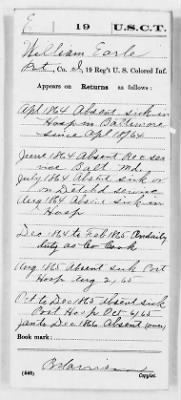 E 19 U.S.C.T.
William Earle
Pvt, Co. D, 19 Reg't U. S. Colored Inf.
Appears on Returns as follows:
Apl 1864 Absent sick in
Hosp in Baltimore
since Apl 18/64
June 1864 Absent Rec ser
vice Balt Md
July 1864 Absent sick or
on Detchd service
Aug 1864 Absent sick in
Hosp
Dec 1864 to Feb 1865 On daily
duty as Co Cook
Aug 1865 absent sick Post
Hosp Aug 2/65
Oct to Dec 1865 absent sick
Post Hosp Oct 6/65
Jan to Dec 1866 Absent
Book mark:
(546) Copyist.